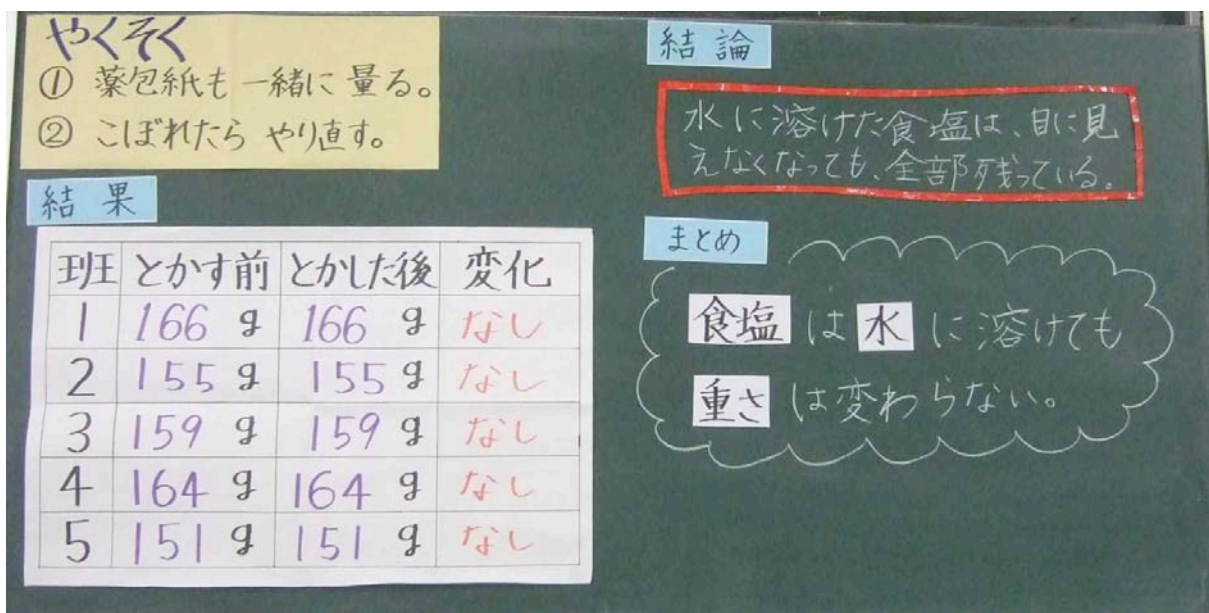 やくそく
① 薬包紙も一緒に量る。
② こぼれたら やり直す。
結果
班 とかす前 とかした後 変化
1 166 g 166 g なし
2 155 g 155 g なし
3 159 g 159 g なし
4 164 g 164 g なし
5 151 g 151 g なし
結論
水に溶けた食塩は、目に見
えなくなっても、全部残っている。
まとめ
食塩は水に溶けても
重さは変わらない。